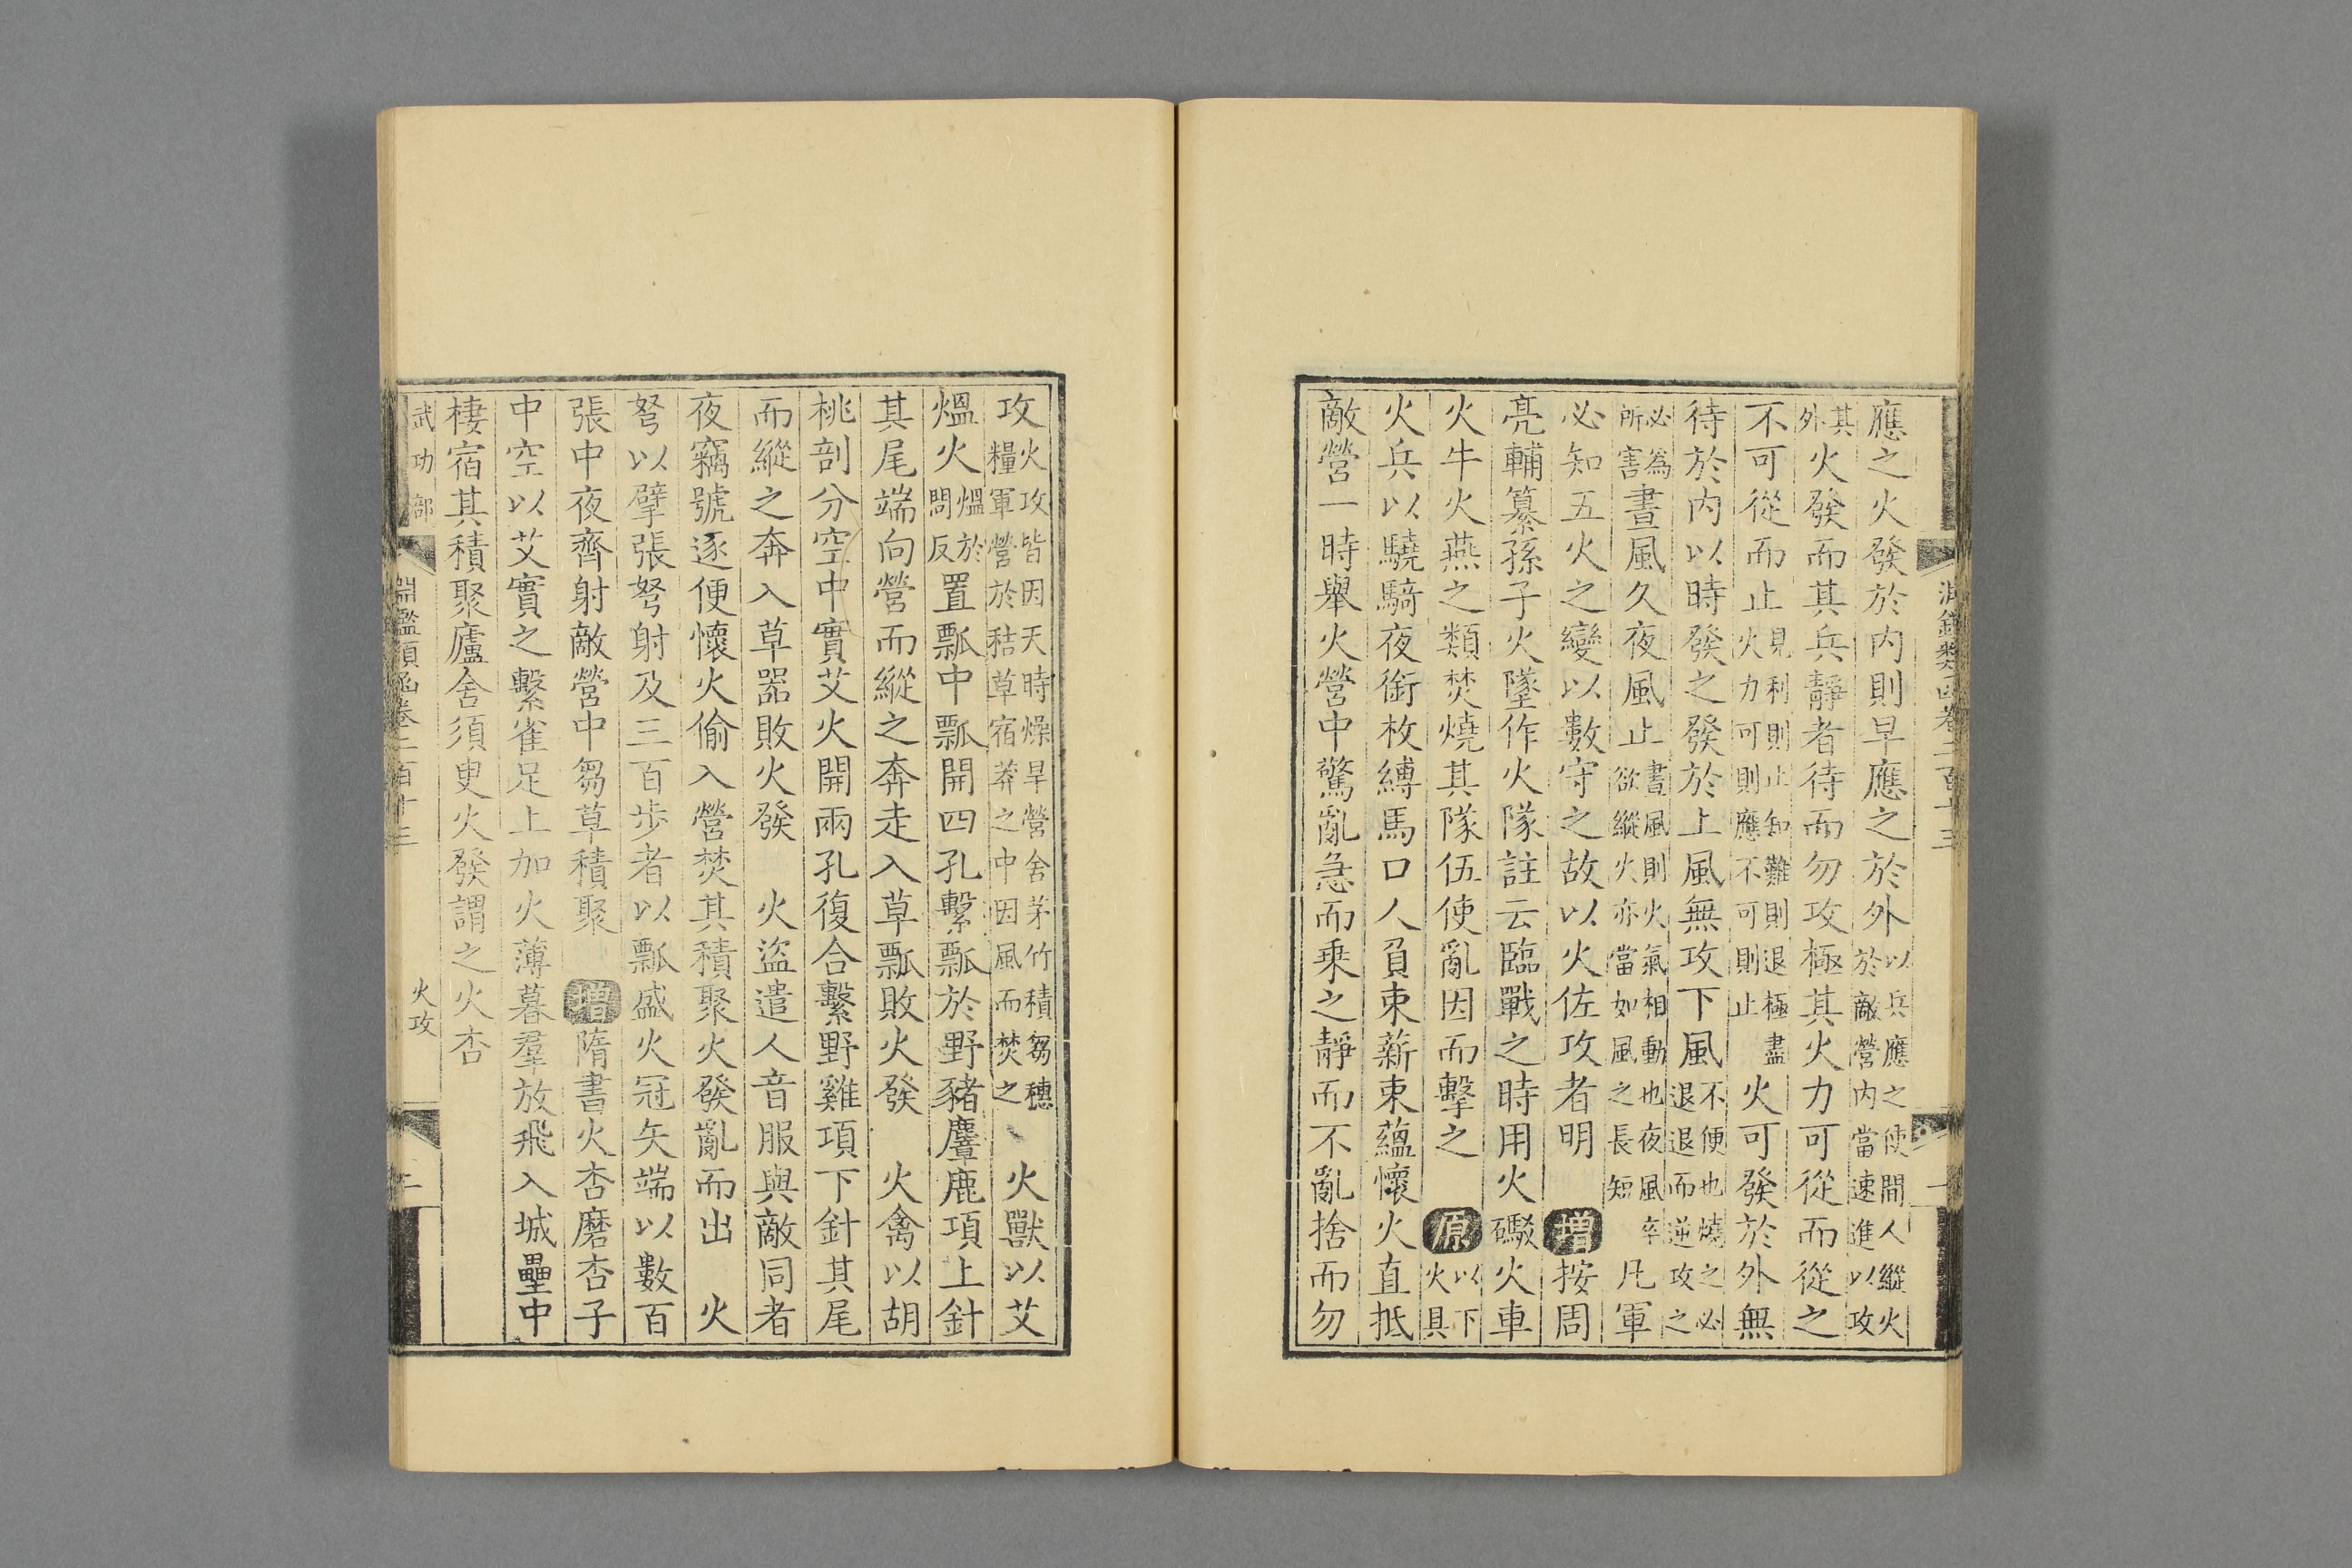 應之火發於内則早應之於外以兵應之使間人縱火於敵營内當速進以攻
其外火發而其兵靜者待而勿攻極其火力可從而從之
不可從而止見利則止知難則退極盡火力可則應不可則止火可發於外無
待於内以時發之發於上風無攻下風不便也燒之必退退而逆攻之
必爲所害晝風久夜風止晝風則火氣相動也夜風卒欲縱火亦當如風之長短凡軍
必知五火之變以數守之故以火佐攻者明增按周
亮輔纂孫子火墜作火隊註云臨戰之時用火礟火車
火牛火燕之類焚燒其隊伍使亂因而擊之原以下火具
火兵以驍騎夜銜枚縛馬口人負束薪束蘊懷火直抵
敵營一時舉火營中驚亂急而乗之靜而不亂捨而勿
攻火攻皆因天時燥旱營舍茅竹積芻穗糧軍營於秸草宿莽之中因風而焚之火獸以艾
熅火熅於問反置瓢中瓢開四孔繫瓢於野豬麞鹿項上針
其尾端向營而縱之奔走入草瓢敗火發　火禽以胡
桃剖分空中實艾火開兩孔復合繫野雞項下針其尾
而縱之奔入草器敗火發　火盜遣人音服與敵同者
夜竊號逐便懷火偷入營焚其積聚火發亂而出　火
弩以擘張弩射及三百步者以瓢盛火冠矢端以數百
張中夜齊射敵營中芻草積聚　增隋書火杏磨杏子
中空以艾實之繫雀足上加火薄暮羣放飛入城壘中
棲宿其積聚廬舍須臾火發謂之火杏
武功部　淵鑑類函卷二百十三　火攻　二